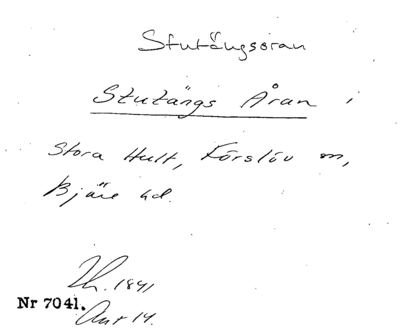 Stutängsöran
Stutängs Åran i
Stora Hult, Förslöv sn,
Bjäre hd.
Lh. 1841
Nr 7041.
Akt 14.